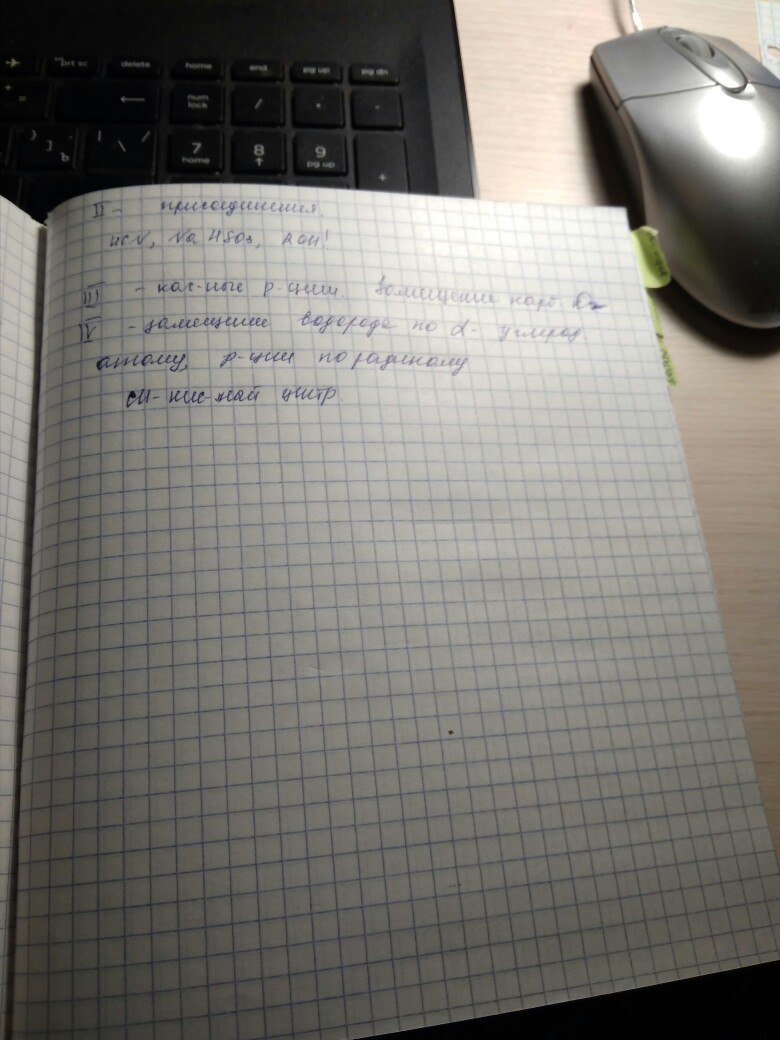 prt sc delete home end pg up pg dn
+ = ← num lock / * -
} ] Ъ | \ / 7 home 8 ↑ 9 pg up +
II - присоединения.
HCN, NaHSO3, ROH!
III - р-ции. Замещение карб.
IV - замещение водорода по α- углерод.
атому, р-ции по
CH- центр.